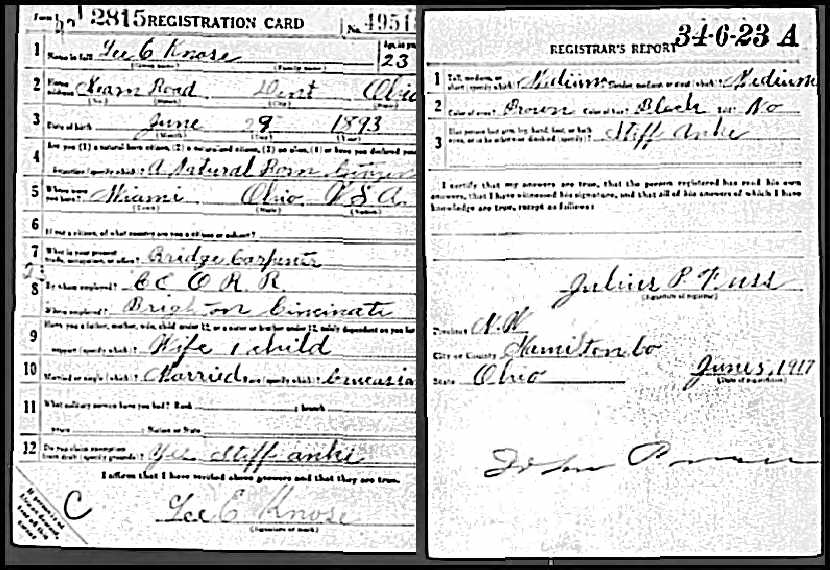 Form 1 2815 REGISTRATION CARD No. 4951
1 Name in full Lee E Knose Age, in yrs 23
(Given name) (Family name)
2 Home address Neam Road Dent Ohio
(No.) (Street) (City) (State)
3 Date of birth June 28 1893
(Month) (Day) (Year)
Are you (1) a natural-born citizen, (2) a naturalized citizen, (3) an alien, (4) or have you declared your
4 intention (specify which)? A Natural Born Citizen
5 Where were you born? Miami Ohio U S A
(Town) (State) (Nation)
6 If not a citizen, of what country are you a citizen or subject?
7 What is your present trade, occupation, or office? Bridge Carpenter
8 By whom employed? C C O R. R.
Where employed? Brighton Cincinati
Have you a father, mother, wife, child under 12, or a sister or brother under 12, solely dependent on you for
9 support (specify which)? Wife 1 child
10 Married or single (which)? Married Race (specify which)? Caucasia
11 What military service have you had? Rank ; branch
years ; Nation or State
12 Do you claim exemption from draft (specify grounds)? Yes Stiff anke
I affirm that I have verified above answers and that they are true.
C Lee E Knose
(Signature or mark)
34-6-23 A
REGISTRAR'S REPORT
1 Tall, medium, or short (specify which)? Medium Slender, medium, or stout (which)? Medium
2 Color of eyes? Brown Color of hair? Black Bald? No
3 Has person lost arm, leg, hand, foot, or both eyes, or is he otherwise disabled (specify)? Stiff Anke
I certify that my answers are true, that the person registered has read his own
answers, that I have witnessed his signature, and that all of his answers of which I have
knowledge are true, except as follows:
Julius P. Fuss
(Signature of registrar)
Precinct N. W
City or County Hamilton Co
State Ohio June 5, 1917
(Date of registration)
John